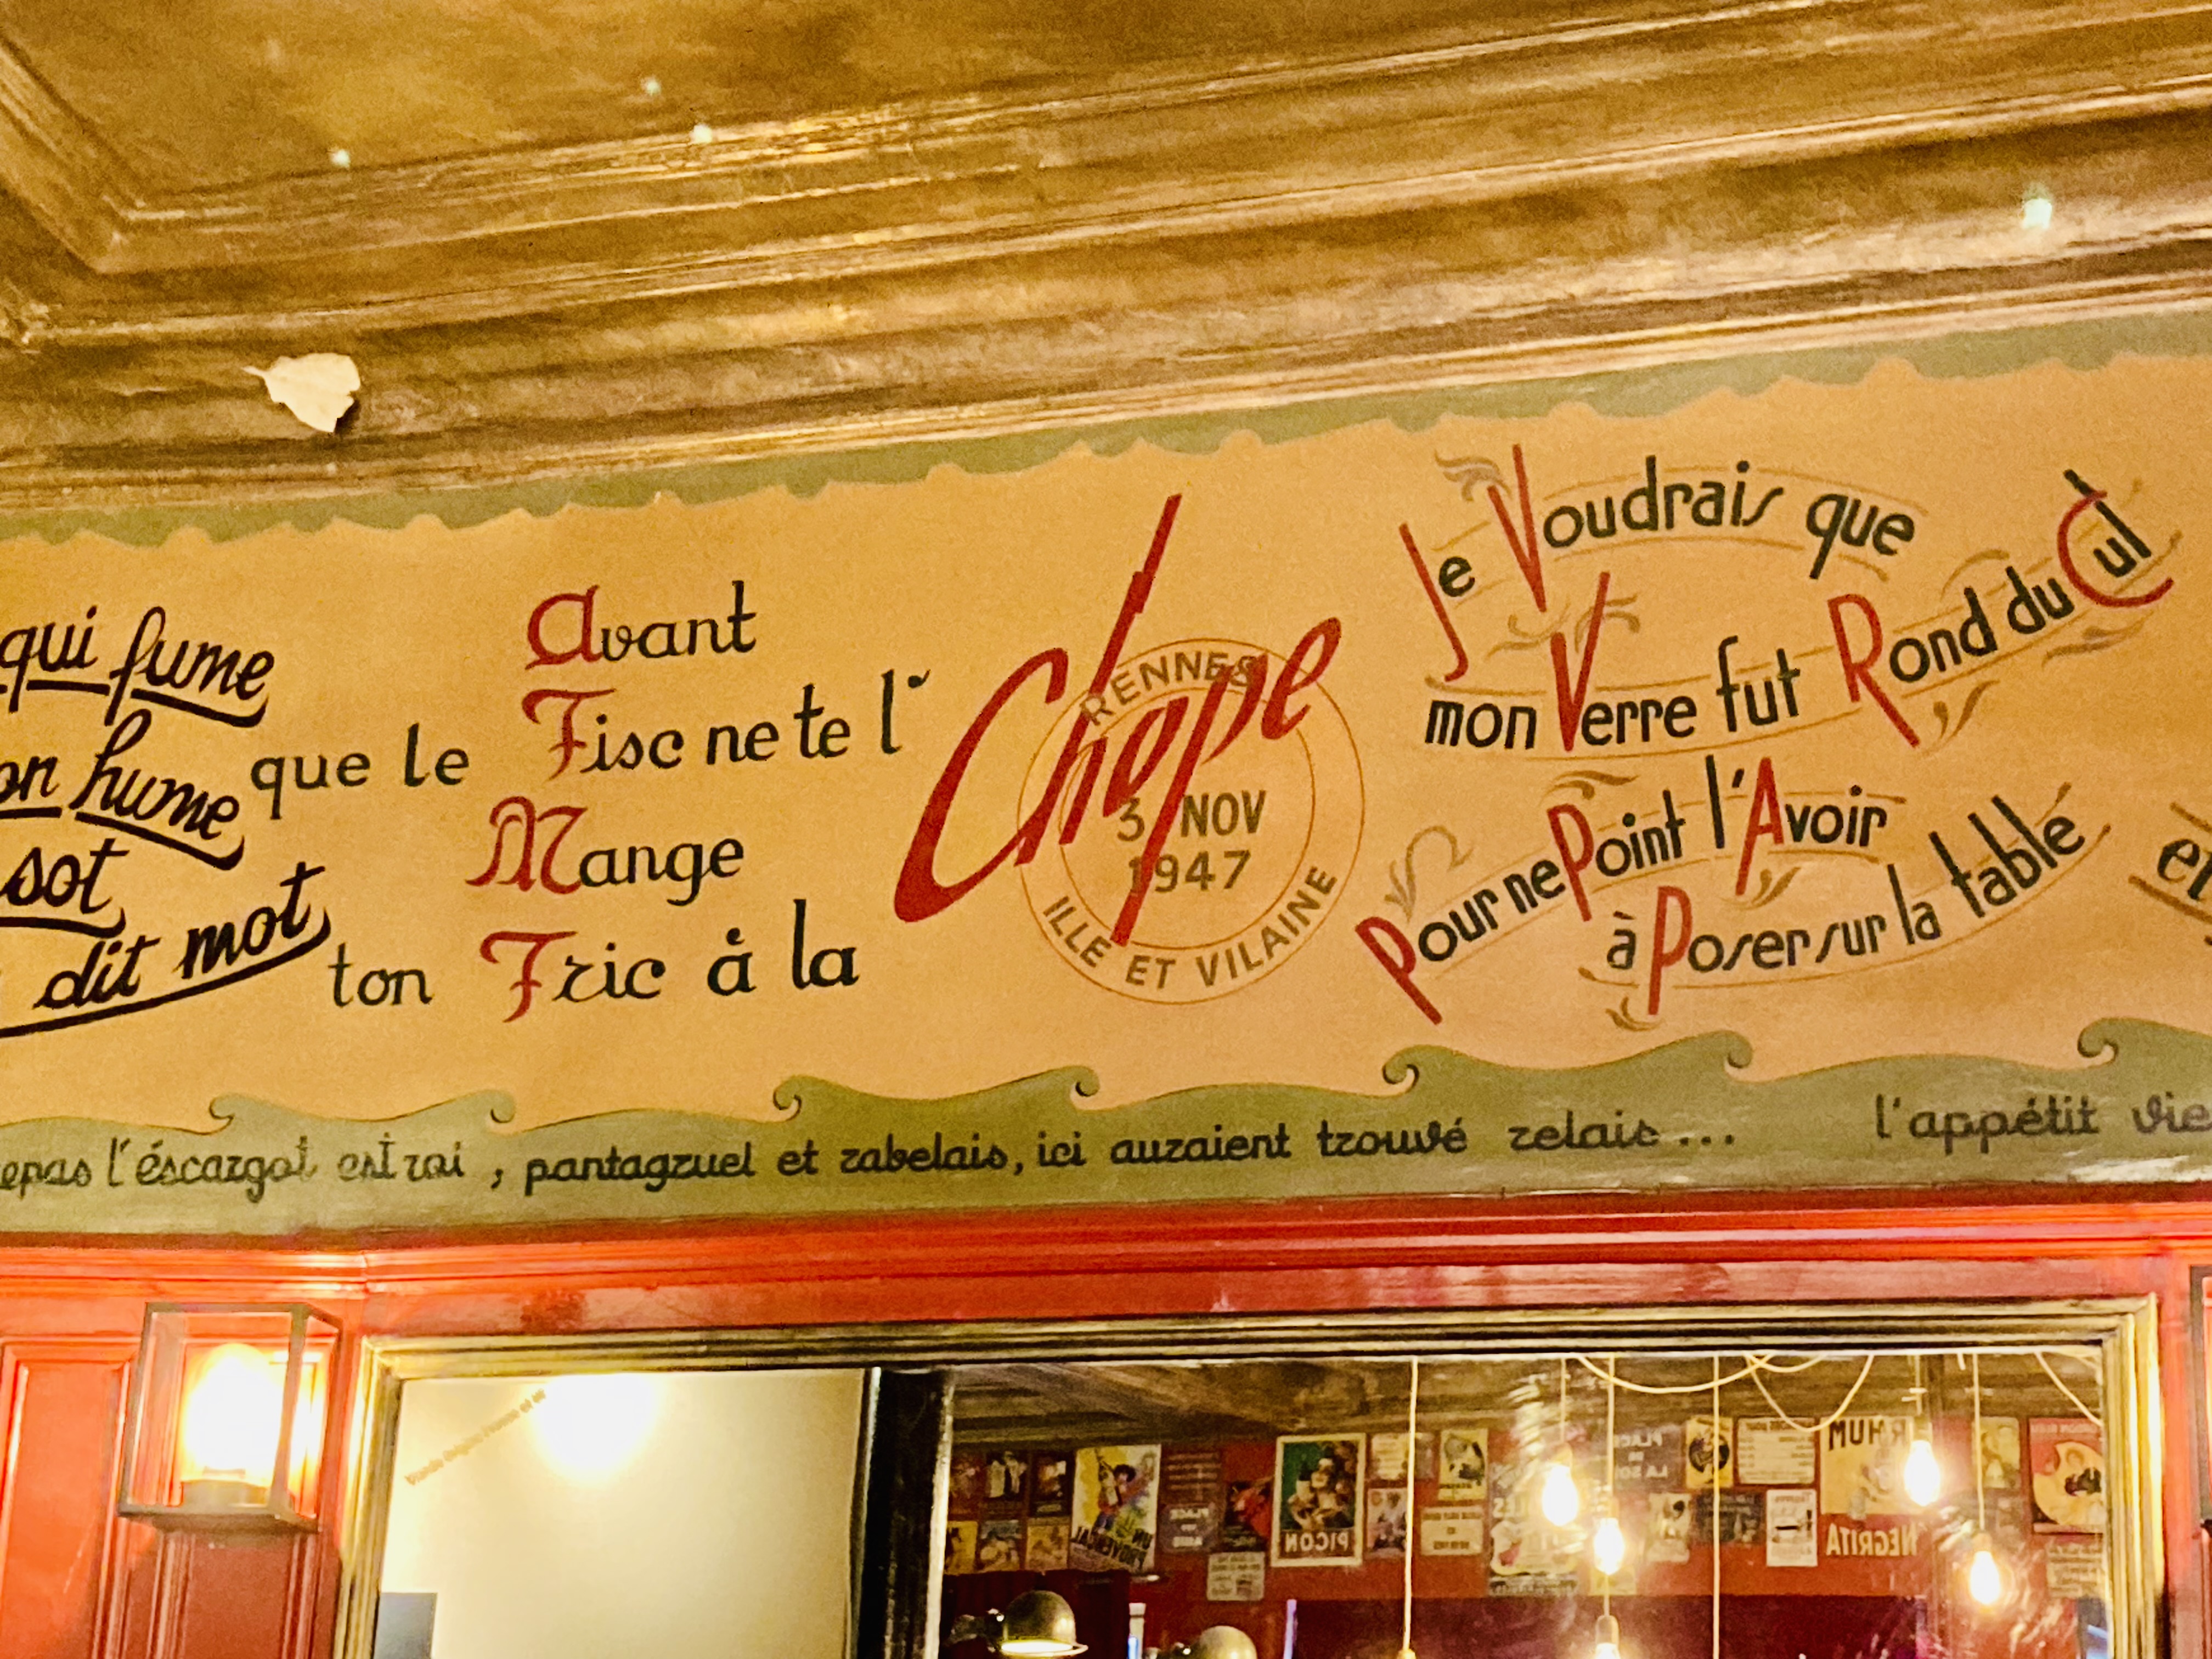 qui fume
hume
sot
dit mot
Avant
que le Fisc ne te l'
Mange
ton Fric à la
Chope
RENNES
3 NOV
1947
ILLE ET VILAINE
Je Voudrais que
mon Verre fut Rond du Cul
Pour ne Point l'Avoir
à Poser sur la table
l'éscargot est roi, pantagruel et rabelais, ici auraient trouvé relais... l'appétit
UN PROVENÇAL
PICON
PLACE
RHUM
NEGRITA